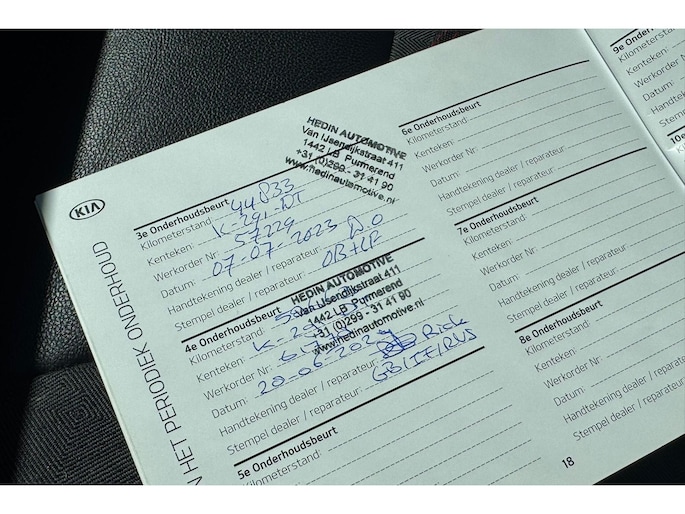 KIA
N HET PERIODIEK ONDERHOUD
3e Onderhoudsbeurt
Kilometerstand: 44833
Kenteken: K-291-NT
Werkorder Nr: 57229
Datum: 07-07-2023
Handtekening dealer / reparateur:
Stempel dealer / reparateur:
HEDIN AUTOMOTIVE
Van IJsendijkstraat 411
1442 LB Purmerend
+31 (0)299 - 31 41 90
www.hedinautomotive.nl
4e Onderhoudsbeurt
Kilometerstand:
Kenteken: K-29
Werkorder Nr:
Datum: 20-06-2024
Handtekening dealer / reparateur: Rick
Stempel dealer / reparateur:
HEDIN AUTOMOTIVE
Van IJsendijkstraat 411
1442 LB Purmerend
+31 (0)299 - 31 41 90
www.hedinautomotive.nl
5e Onderhoudsbeurt
Kilometerstand:
6e Onderhoudsbeurt
Kilometerstand:
Kenteken:
Werkorder Nr:
Datum:
Handtekening dealer / reparateur:
Stempel dealer / reparateur:
7e Onderhoudsbeurt
Kilometerstand:
Kenteken:
Werkorder Nr:
Datum:
Handtekening dealer / reparateur:
Stempel dealer / reparateur:
8e Onderhoudsbeurt
Kilometerstand:
Kenteken:
Werkorder Nr:
Datum:
Handtekening dealer / reparateur:
Stempel dealer / reparateur:
18
9e Onder
Kilometerst
Kenteken:
Werkorder
Datum:
Handteken
Stempel d
10e